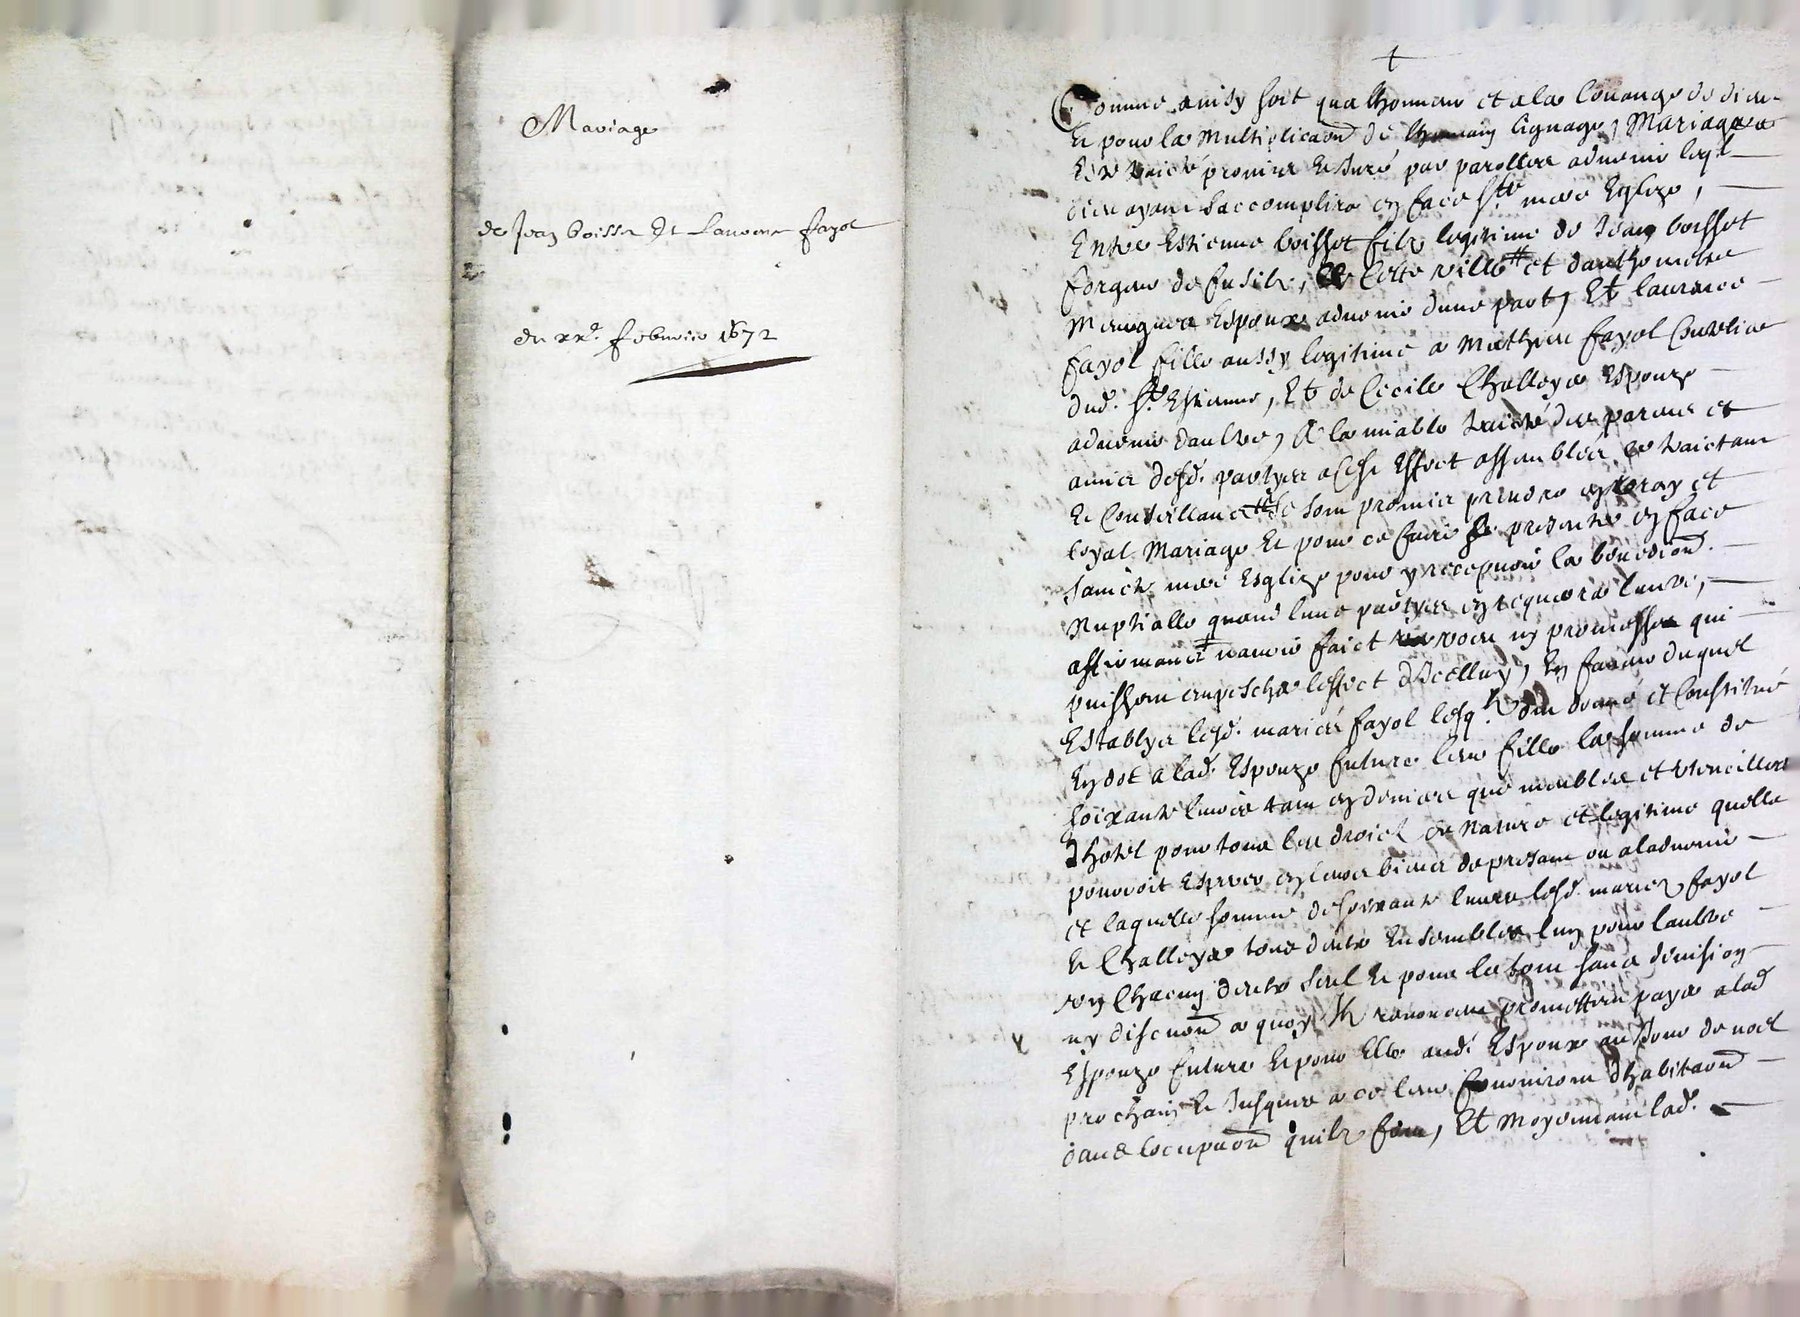 Mariage
de Jean boisset et Laurence fayol
du xx.e febvrier 1672
Comme ainsy soit qua lhonneur et a la louange de dieu
Et pour la multiplicaon de lhumain lignage, Mariage a
Este traicté promis et Juré par parolles advenir leql
dieu aydant saccomplira en face ste mere Eglize,
Entre Estienne boisset filz legitime de Jean boisset
forgeur de fusilz, de cette ville # et danthoinette
Espoux advenir dune part, Et laurence
fayol fille aussy legitime a Mathieu fayol
dud. St Estienne, Et de Cecile Challeye Espouze
advenir daultre, A la miable traicté des parens et
amis desd. partyes a cest effect assemblés le traictant
Et conseillant se sont promis prendre en vray et
loyal Mariage Et pour ce faire se presenter en face
saincte mere Esglize pour y recepvoir la benedion.
Nuptialle quand lune partyes en requera lautre,
affirmant navoir faict voeu ny promesses qui
puissent empescher leffect dIcelluy, En faveur duquel
Establys lesd. mariés fayol lesqls ont donné et constitué
En dot a lad. Espouze future leur fille la somme de
soixante livres tant en deniers que meubles et
dhotel pour tous les droictz de nature et legitime quelle
pouvoit Esperer en leurs biens de present ou aladvenir
et laquelle somme de soixante livres lesd. mariez fayol
Et Challeye tous deulx Ensembles lun pour laultre
un chacun deulx seul et pour le tout sans division
ny discuon a quoy ilz renoncent promettent payer a lad
Espouze future Et pour Elle aud. Espoux au Jour de noel
prochain Et Jusques a ce leur fourniront dhabitaon
dans locupaon quilz font, Et moyennant lad.